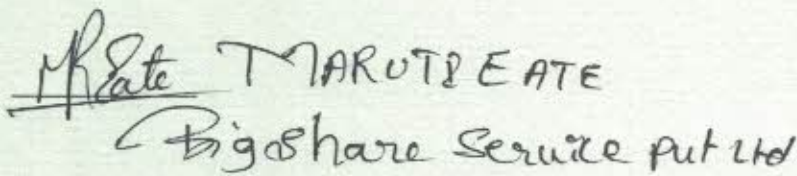 MREate MARUTI EATE
Bigshare Service Pvt Ltd